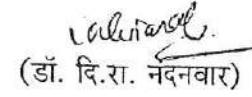 (डॉ. दि.रा. नंदनवार)